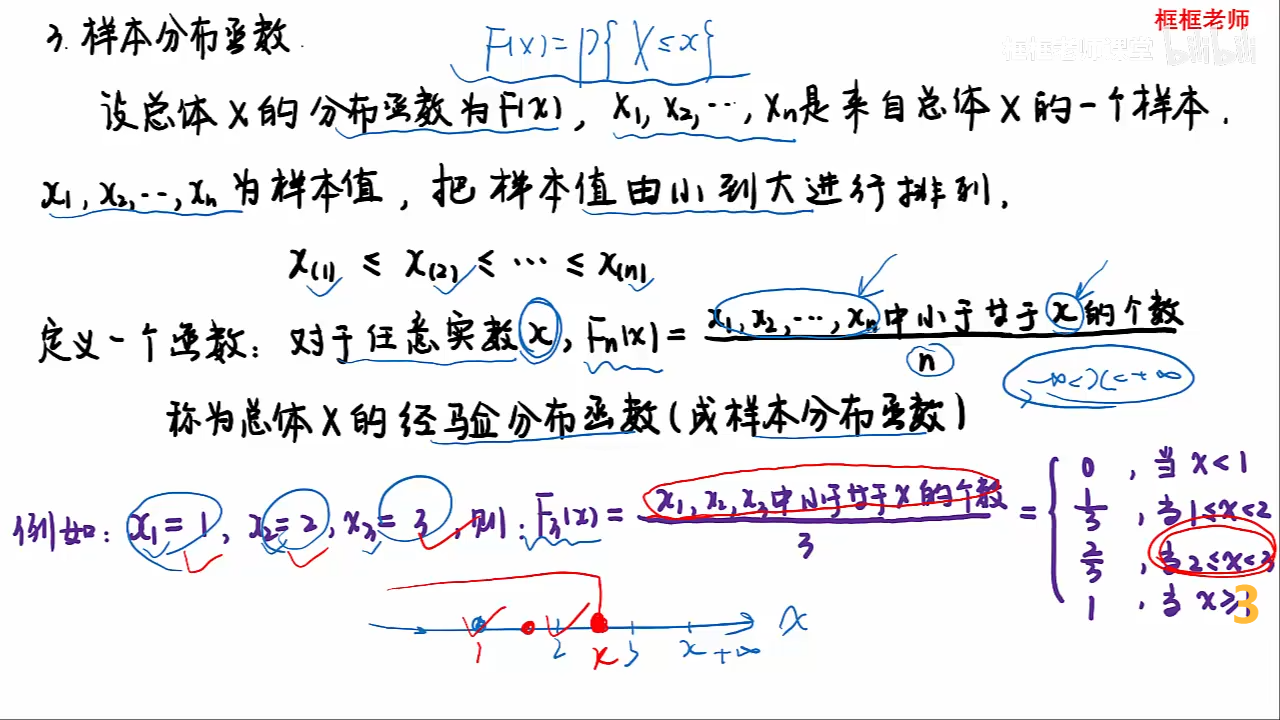 框框老师
框框老师课堂 bilibili
3. 样本分布函数.
F(x)=P{X≤x}
设总体X的分布函数为F(x), X₁,X₂,…,Xₙ是来自总体X的一个样本.
x₁,x₂,…,xₙ为样本值,把样本值由小到大进行排列.
x₍₁₎ ≤ x₍₂₎ ≤ … ≤ x₍ₙ₎
定义一个函数:对于任意实数x, Fₙ(x)= x₁,x₂,…,xₙ中小于等于x的个数 / n
-∞<x<+∞
称为总体X的经验分布函数(或样本分布函数)
例如: x₁=1, x₂=2, x₃=3, 则: F₃(x)= x₁,x₂,x₃中小于等于x的个数 / 3 = {
0 ,当 x<1
1/3 ,当1≤x<2
2/3 ,当2≤x<3
1 ,当 x≥3
1 2 x 3 x +∞ x